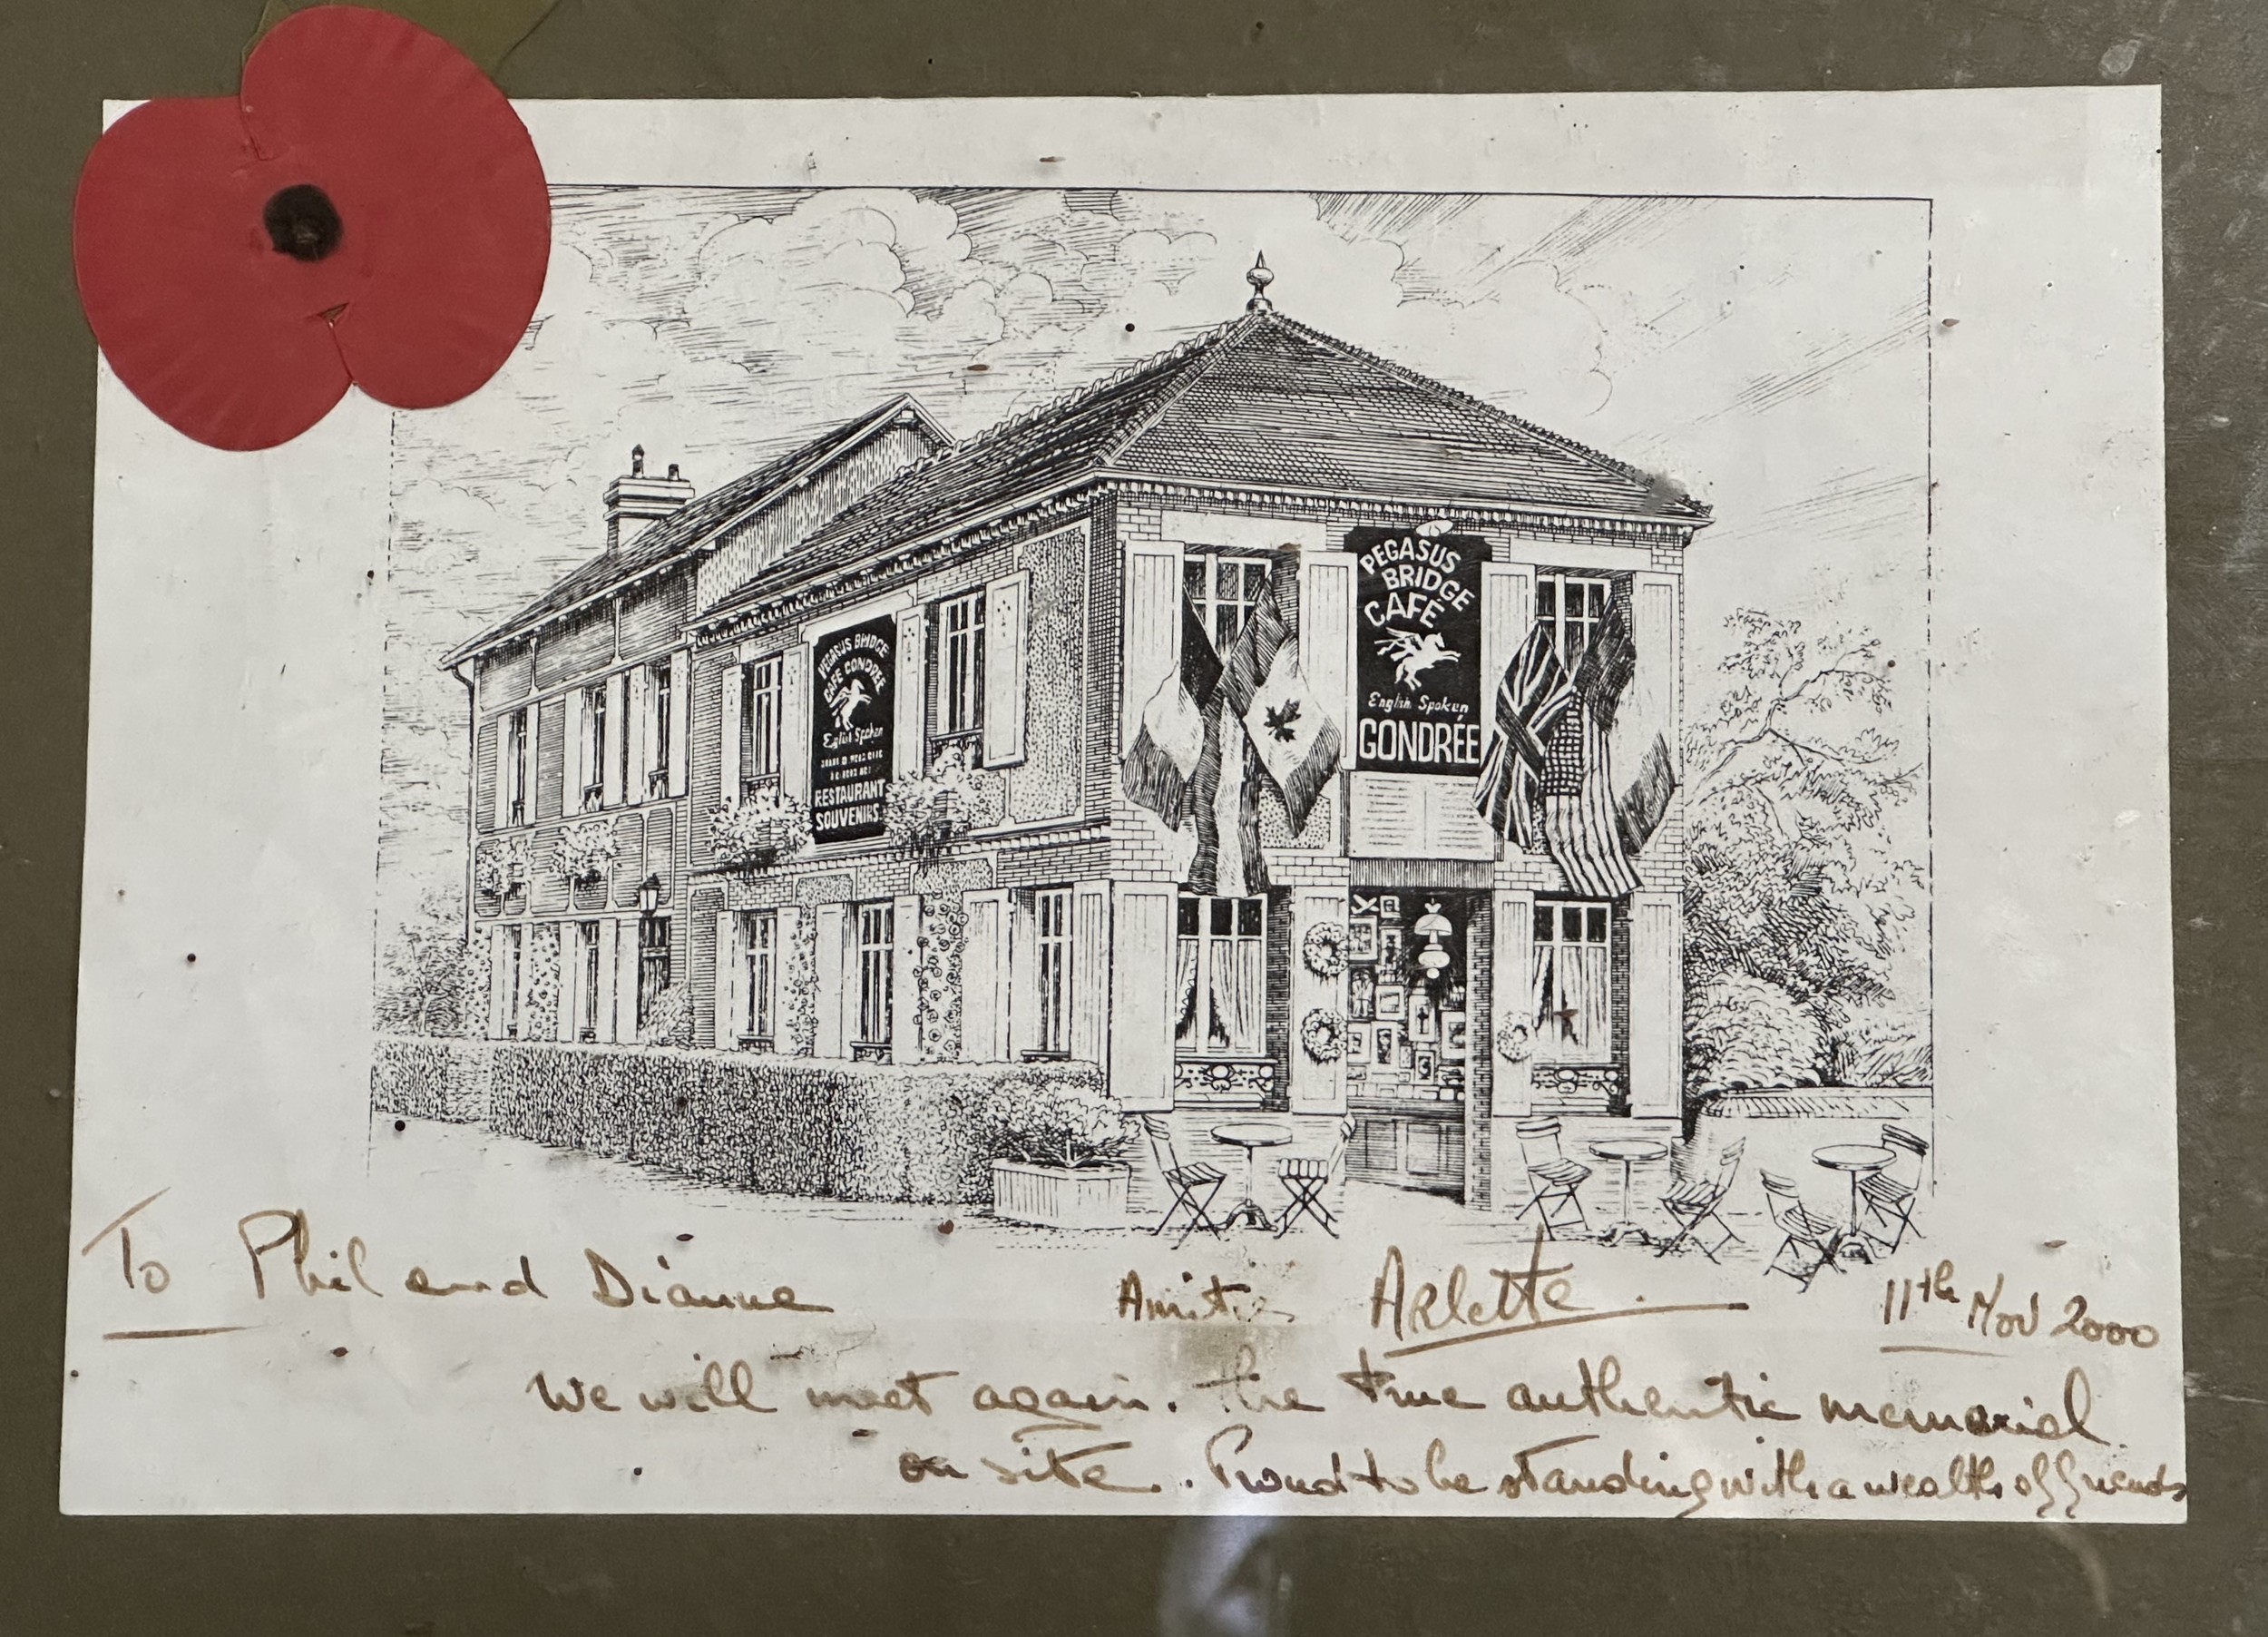 PEGASUS
BRIDGE
CAFÉ
English Spoken
GONDRÉE
PEGASUS BRIDGE
CAFE GONDREE
English Spoken
RESTAURANT
SOUVENIRS
To Phil and Dianne
Amitiés Arlette 11th Nov 2000
We will meet again. the true authentic memorial
on site. Proud to be standing with a wealth of friends